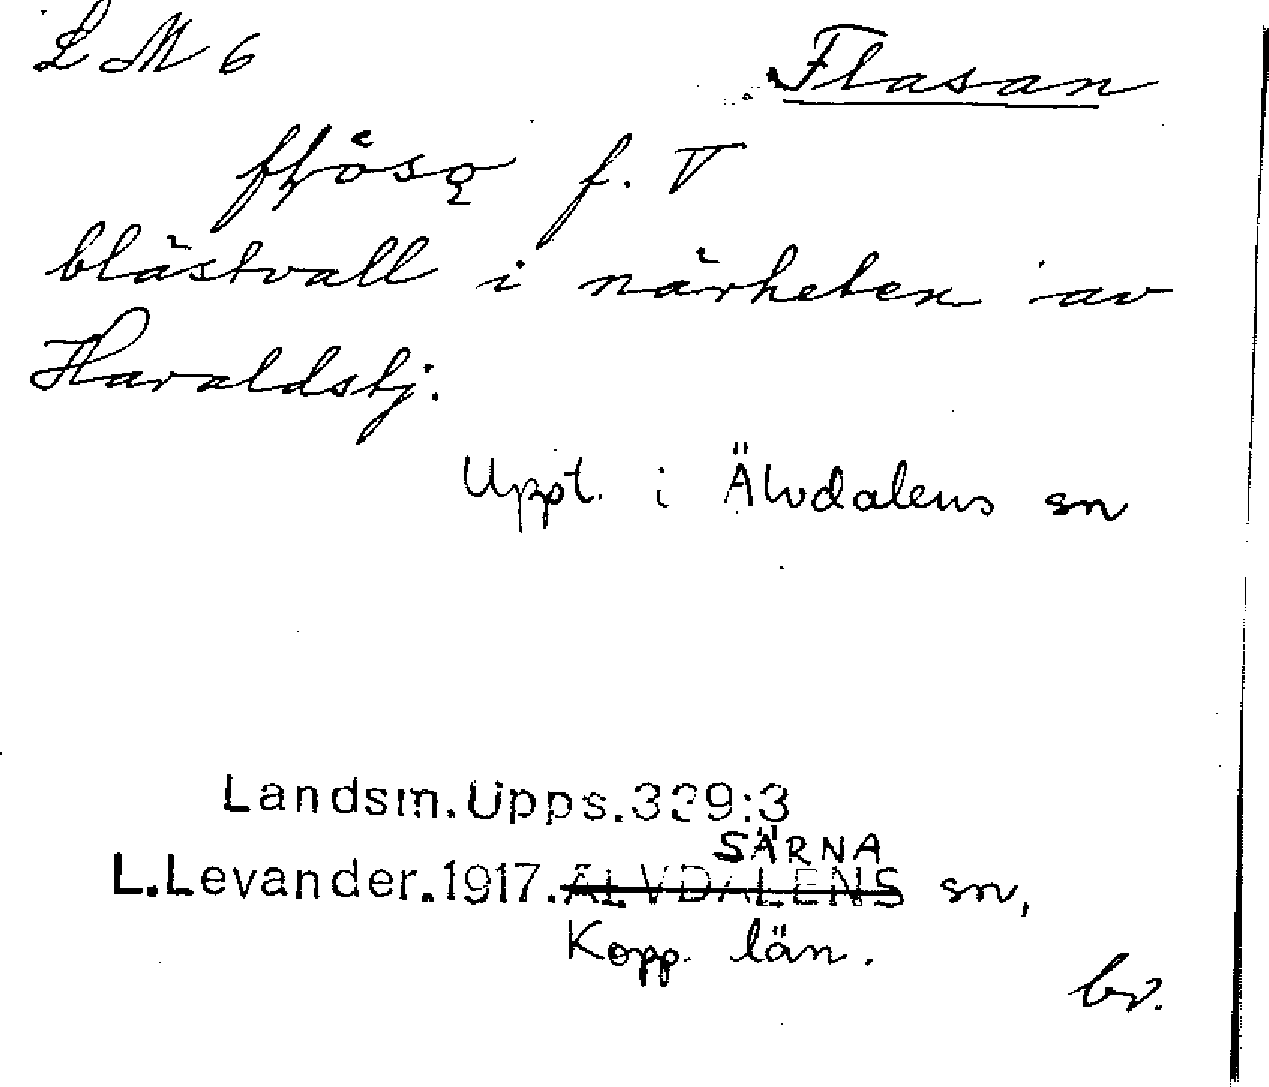 L M 6
Flasan
f. V
blästvall i närheten av
Haraldstj.
Uppt. i Älvdalens sn
Landsm.Upps.339:3
SÄRNA
L.Levander.1917.ÄLVDALENS sn,
Kopp. län.
bv.